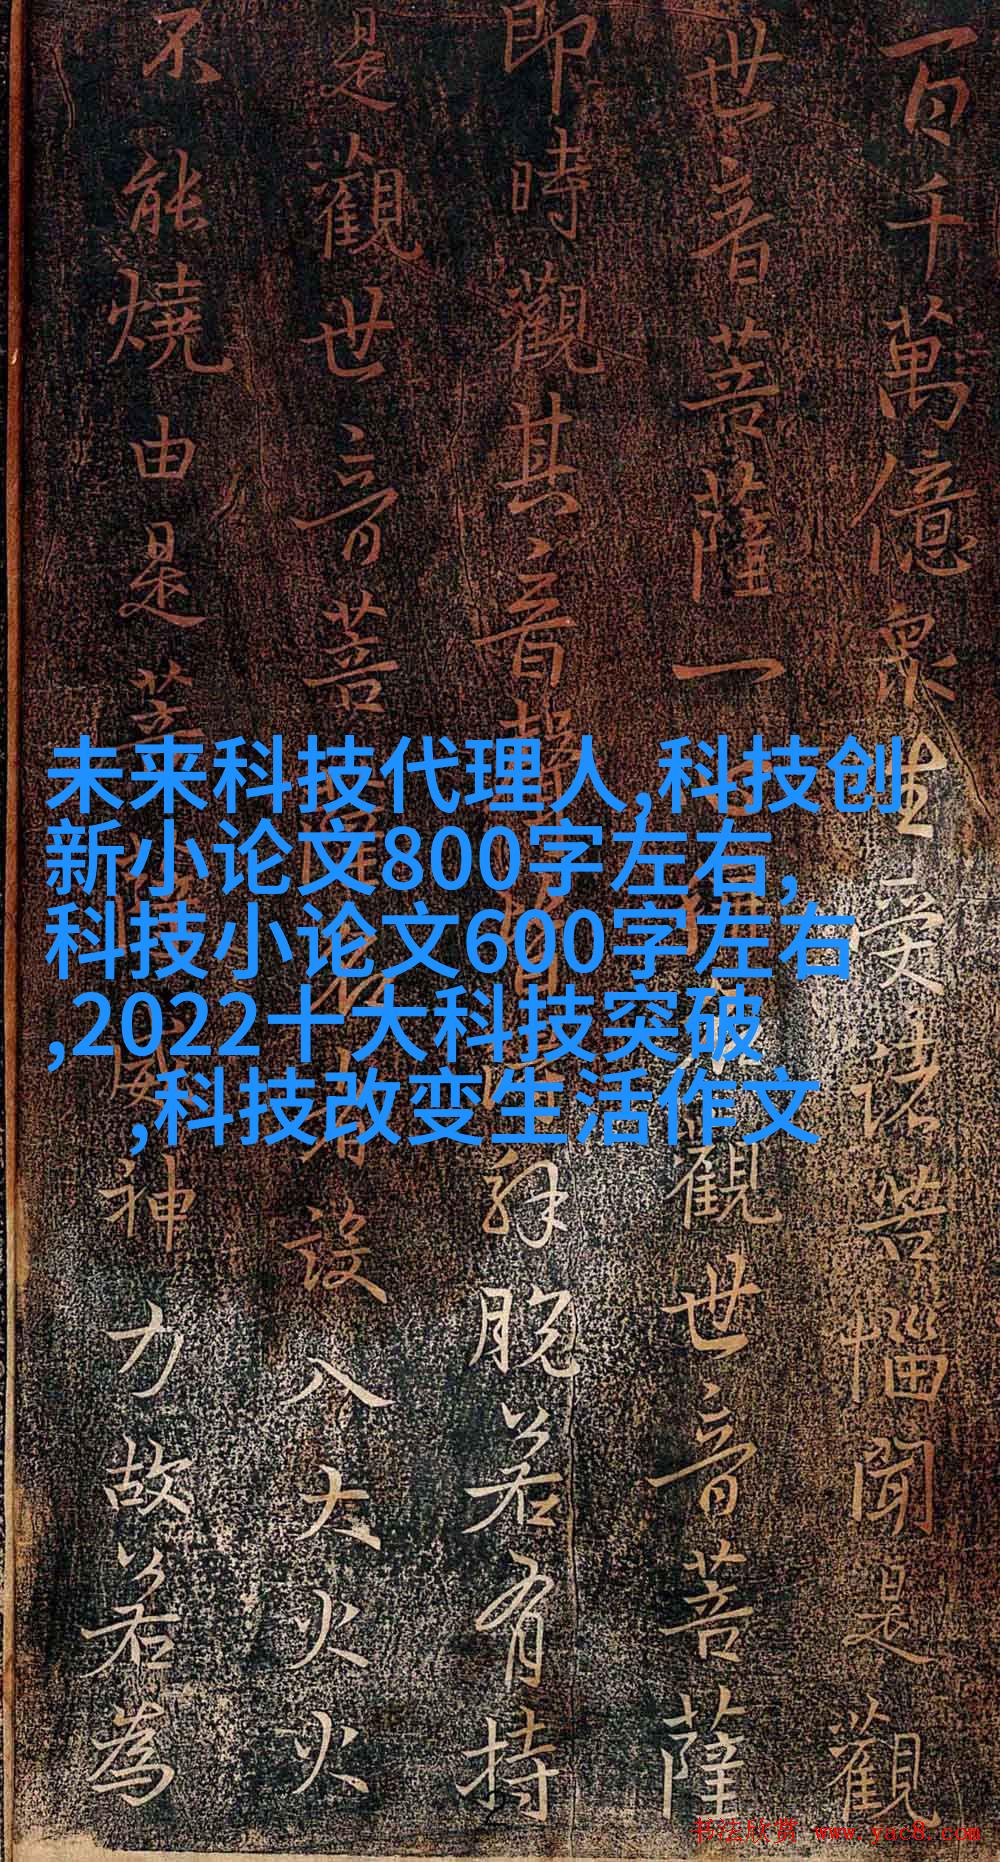 百千萬億眾生受諸苦惱聞是觀
世音菩薩一心稱名觀世音菩薩
即時觀其音聲皆得解脫若有持
是觀世音菩薩名者設入大火火
不能燒由是菩薩威神力故若為
未来科技代理人,科技创
新小论文800字左右,
科技小论文600字左右
,2022十大科技突破
,科技改变生活作文
书法欣赏 www.yac8.com